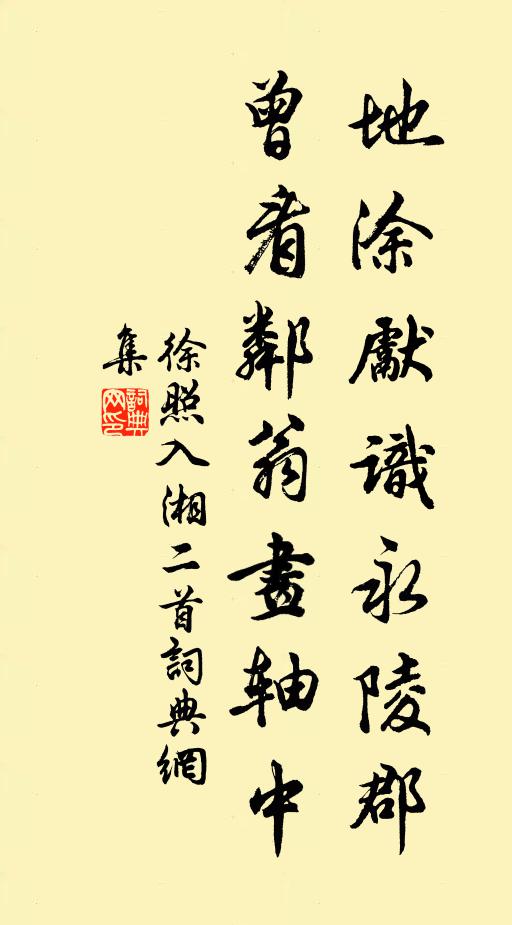 地涂獻識永陵郡
曾看鄰翁畫轴中
徐照入湘二首詞典網
集
詞典网印